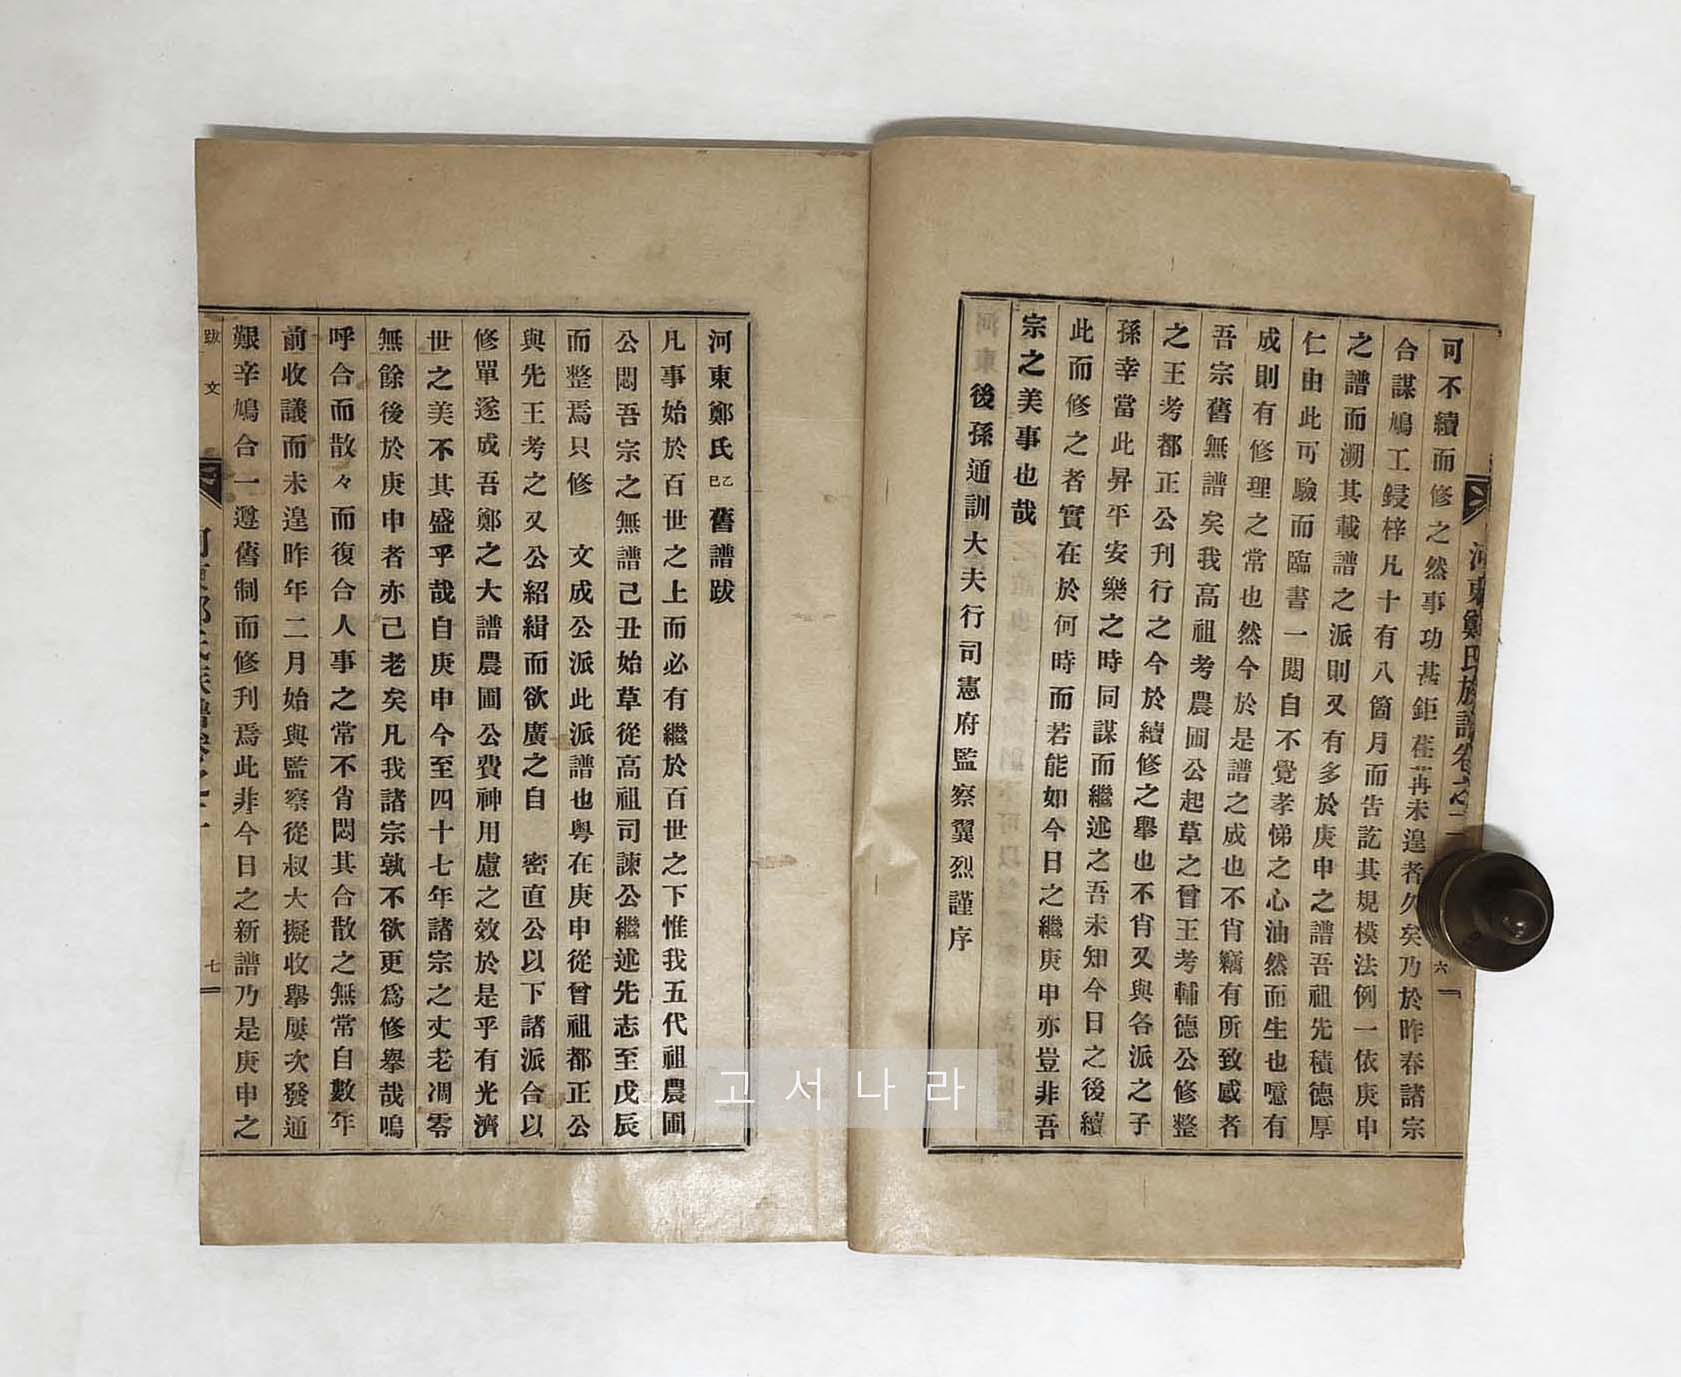 可不續而修之然事功甚鉅荏苒未遑者久矣乃於昨春諸宗
合謀鳩工鋟梓凡十有八箇月而告訖其規模法例一依庚申
之譜而溯其載譜之派則又有多於庚申之譜吾祖先積德厚
仁由此可驗而臨書一閱自不覺孝悌之心油然而生也噫有
成則有修理之常也然今於是譜之成也不肖竊有所致感者
吾宗舊無譜矣我高祖考農圃公起草之曾王考輔德公修整
之王考都正公刊行之今於續修之擧也不肖又與各派之子
孫幸當此昇平安樂之時同謀而繼述之吾未知今日之後續
此而修之者實在於何時而若能如今日之繼庚申亦豈非吾
宗之美事也哉
後孫通訓大夫行司憲府監察翼烈謹序
河東鄭氏族譜卷之二
六
河東鄭氏乙巳舊譜跋
凡事始於百世之上而必有繼於百世之下惟我五代祖農圃
公悶吾宗之無譜己丑始草從高祖司諫公繼述先志至戊辰
而整焉只修 文成公派此派譜也粤在庚申從曾祖都正公
與先王考之又公紹緝而欲廣之自 密直公以下諸派合以
修單遂成吾鄭之大譜農圃公費神用慮之效於是乎有光濟
世之美不其盛乎哉自庚申今至四十七年諸宗之丈老凋零
無餘後於庚申者亦己老矣凡我諸宗孰不欲更爲修擧哉嗚
呼合而散々而復合人事之常不肖悶其合散之無常自數年
前收議而未遑昨年二月始與監察從叔大擬收擧屢次發通
艱辛鳩合一遵舊制而修刊焉此非今日之新譜乃是庚申之
跋文
七
고서나라